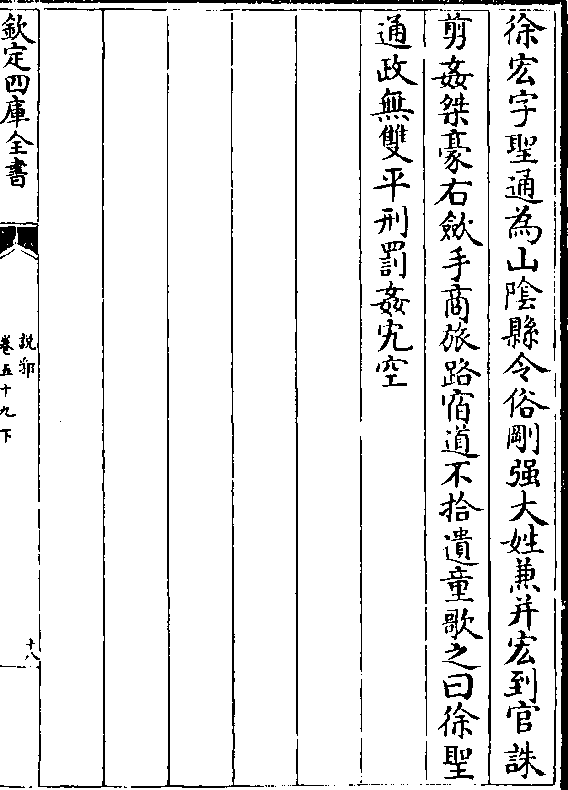 徐宏字聖通為山陰縣令俗剛强大姓兼并宏到官誅
剪姦桀豪右斂手商旅路宿道不拾遺童歌之曰徐聖
通政無雙平刑罰姦宄空
欽定四庫全書
說郛
卷五十九下
十八